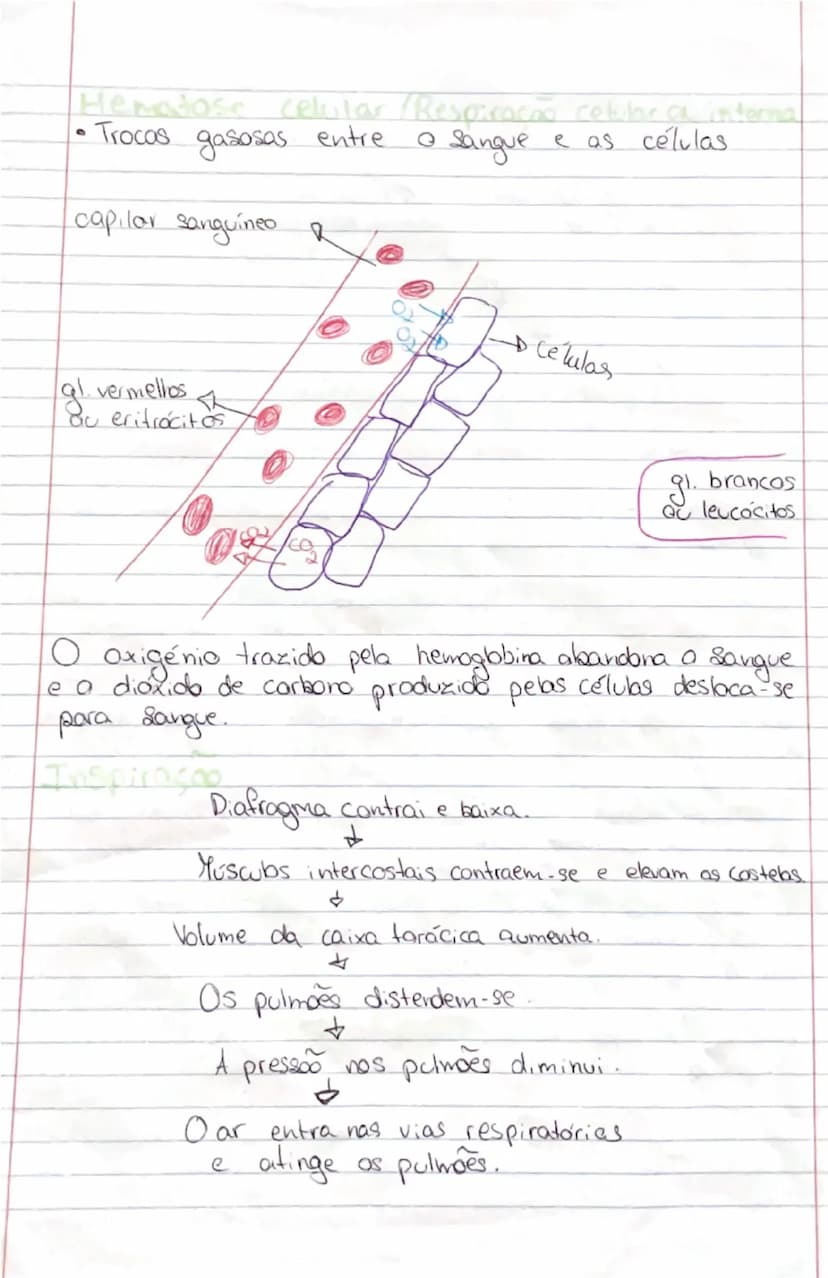 Hematose celular / Respiração celular ou interna
• Trocas gasosas entre o sangue e as células
capilar sanguíneo
O₂
O₂
células
gl. vermelhos
ou eritrócitos
gl. brancos
ou leucócitos
CO₂
CO₂
O oxigénio trazido pela hemoglobina abandona o sangue
e o dióxido de carbono produzido pelas células desloca-se
para sangue.
Inspiração
Diafragma contrai e baixa.
Músculos intercostais contraem-se e elevam as costelas
Volume da caixa torácica aumenta.
Os pulmões distendem-se.
A pressão nos pulmões diminui.
O ar entra nas vias respiratórias
e atinge os pulmões.